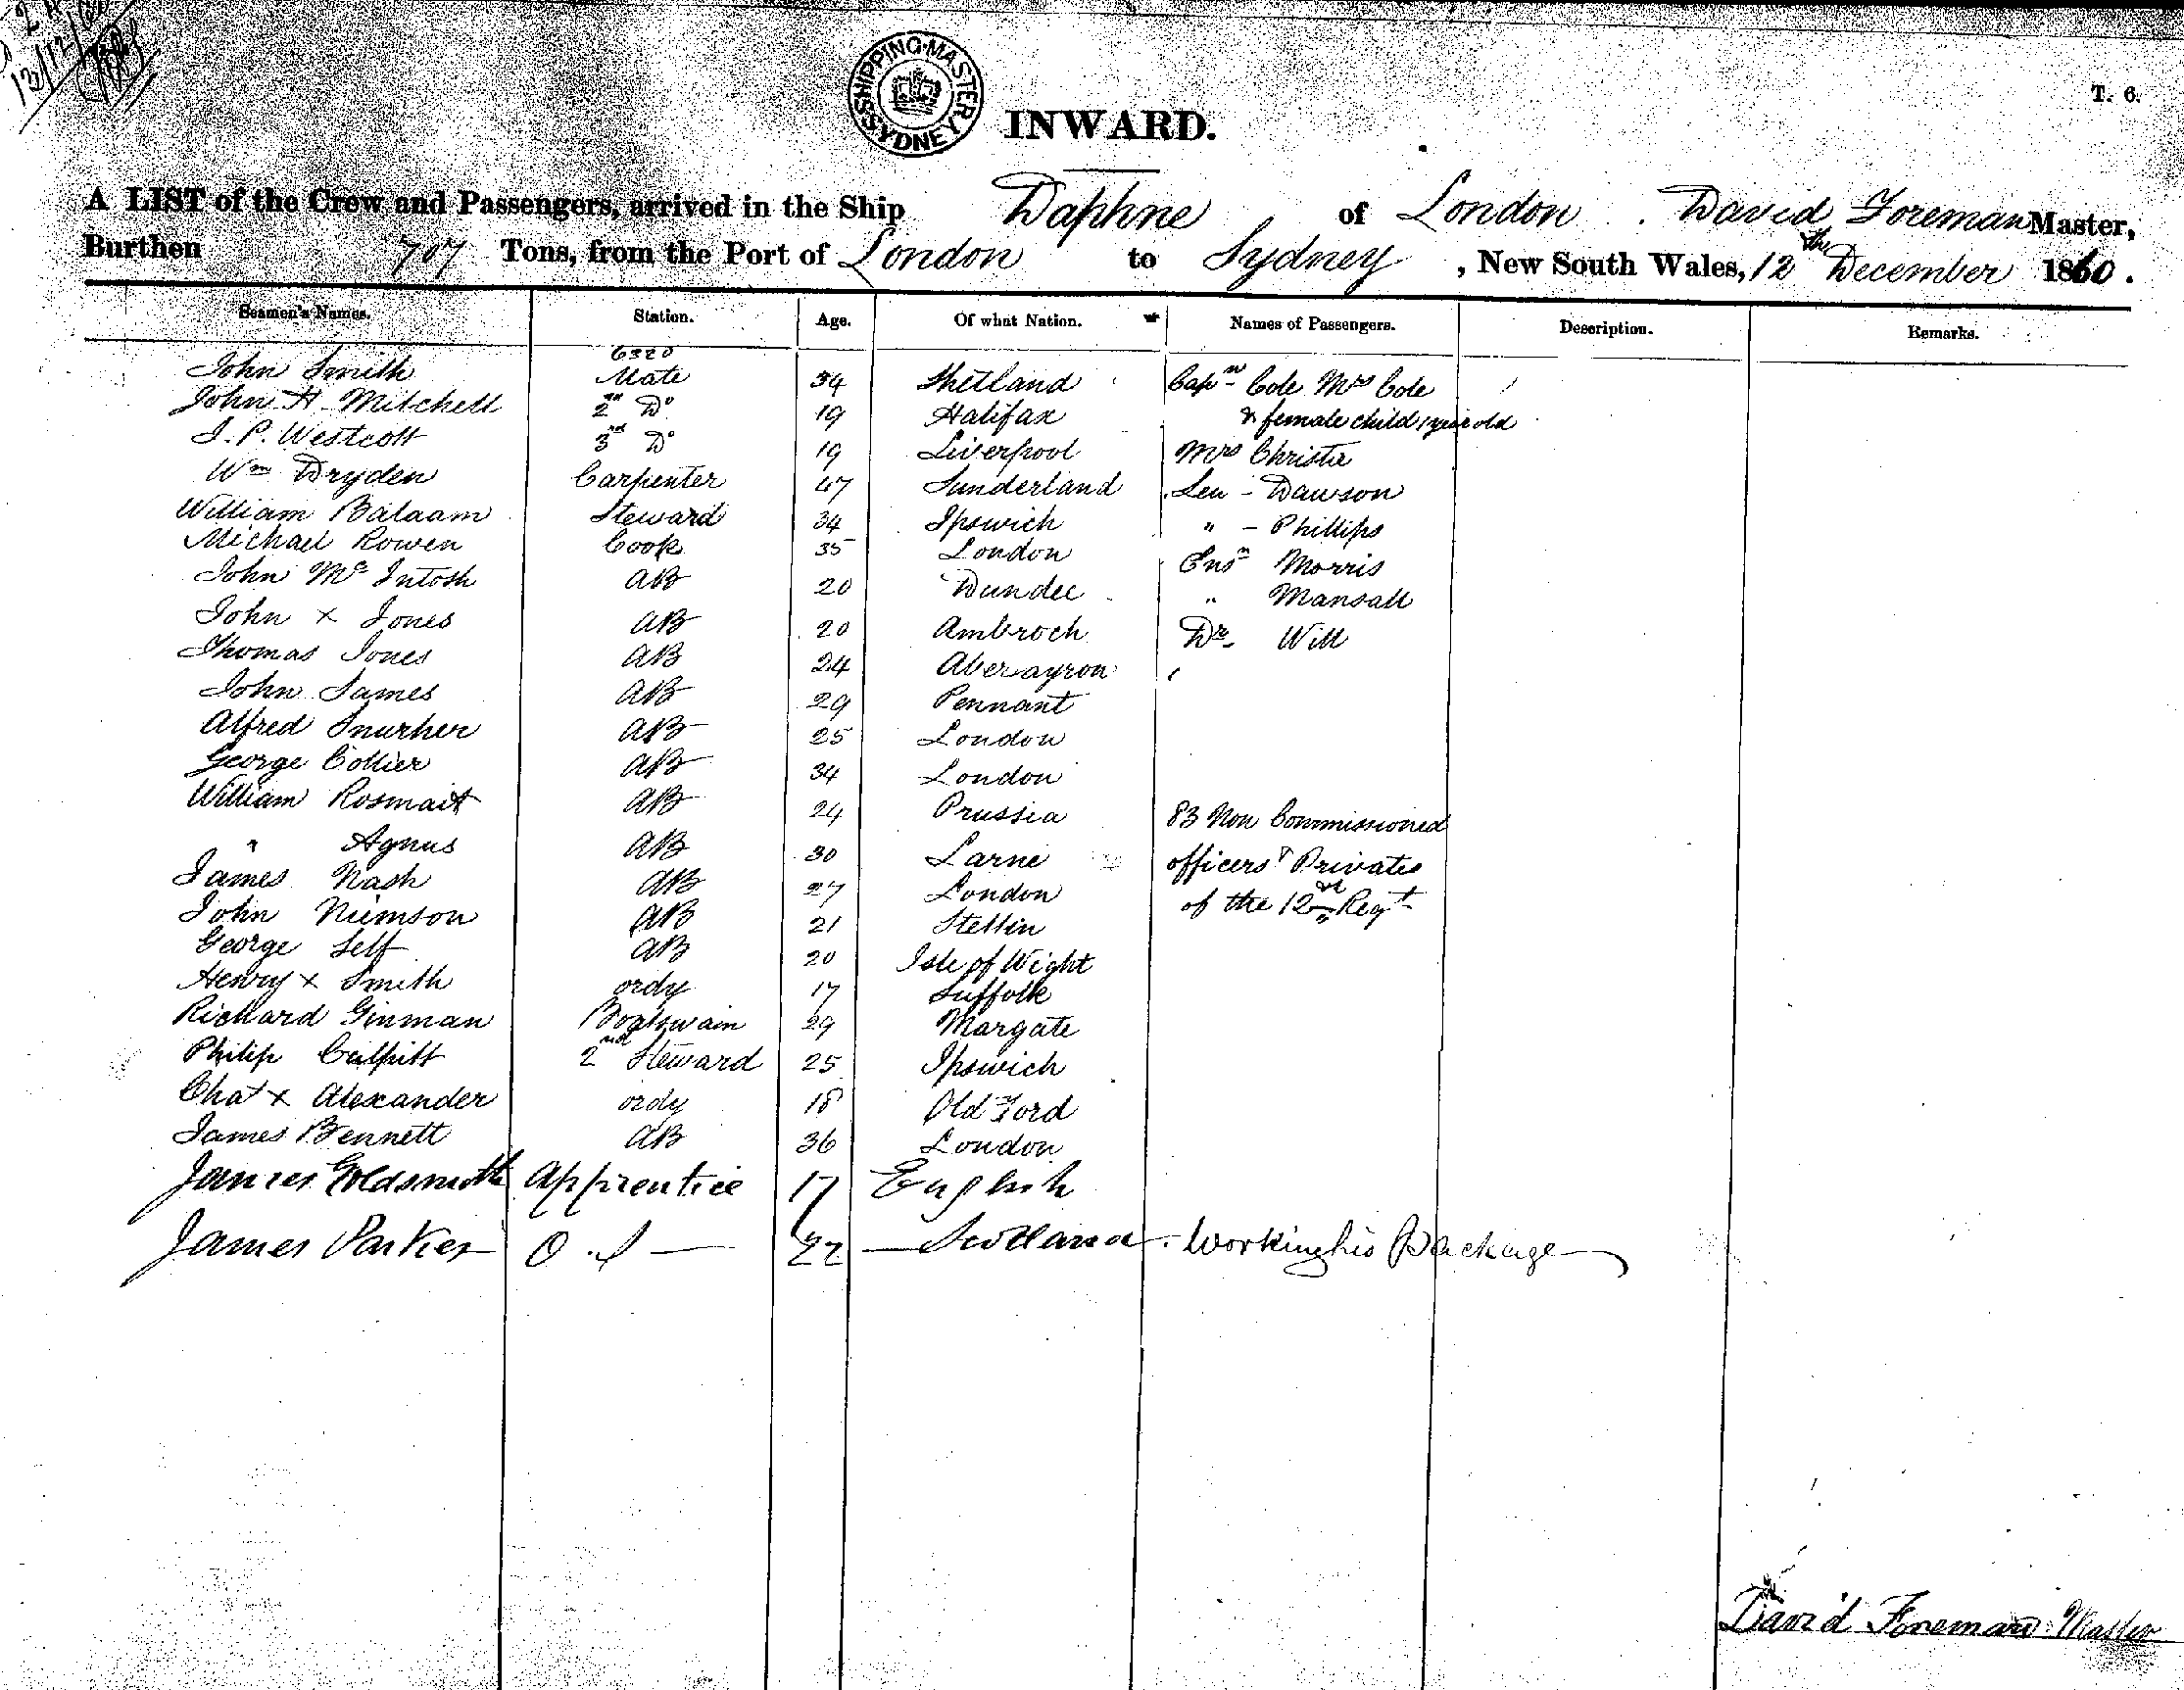 13/12/60
SHIPPING MASTER SYDNEY
T. 6.
INWARD.
A LIST of the Crew and Passengers, arrived in the Ship Daphne of London . David Foreman Master,
Burthen 707 Tons, from the Port of London to Sydney , New South Wales, 12th December 1860.
Seamen's Names. Station. Age. Of what Nation. Names of Passengers. Description. Remarks.
6320
John Smith Mate 34 Shetland Capn Cole Mrs Cole
John H Mitchell 2nd Do 19 Halifax & female child 1 year old
J. P. Westcott 3rd Do 19 Liverpool Mrs Christie
Wm Dryden Carpenter 47 Sunderland Leu - Dawson
William Balaam Steward 34 Ipswich " - Phillips
Michael Rowen Cook 35 London Ensn Morris
John Mc Intosh AB 20 Dundee " Mansall
John x Jones AB 20 Ambroch Dr Will
Thomas Jones AB 24 Aberayron
John James AB 29 Pennant
Alfred Snurher AB 25 London
George Collier AB 34 London
William Rosmait AB 24 Prussia 83 Non Commissioned
" Agnus AB 30 Larne officers & Privates
James Nash AB 27 London of the 12nd Regt
John Niemson AB 21 Stettin
George Self AB 20 Isle of Wight
Henry x Smith ordy 17 Suffolk
Richard Ginman Boatswain 29 Margate
Philip Culpitt 2nd Steward 25 Ipswich
Chas x Alexander ordy 18 Old Ford
James Bennett AB 36 London
James Goldsmith Apprentice 17 English
James Parker O.S — 22 — Scotland - Working his Package
David Foreman Master